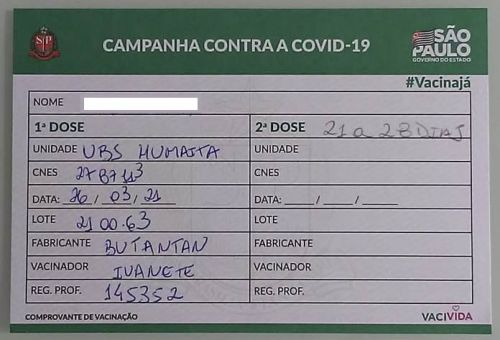 CAMPANHA CONTRA A COVID-19
SÃO PAULO
GOVERNO DO ESTADO
#Vacinajá
NOME
1ª DOSE 2ª DOSE 21 a 28 DIAS
UNIDADE UBS HUMAITA UNIDADE
CNES 2787113 CNES
DATA: 26 / 03 / 21 DATA: ___/___/___
LOTE 2100.63 LOTE
FABRICANTE BUTANTAN FABRICANTE
VACINADOR IVANETE VACINADOR
REG. PROF. 145352 REG. PROF.
COMPROVANTE DE VACINAÇÃO VACIVIDA